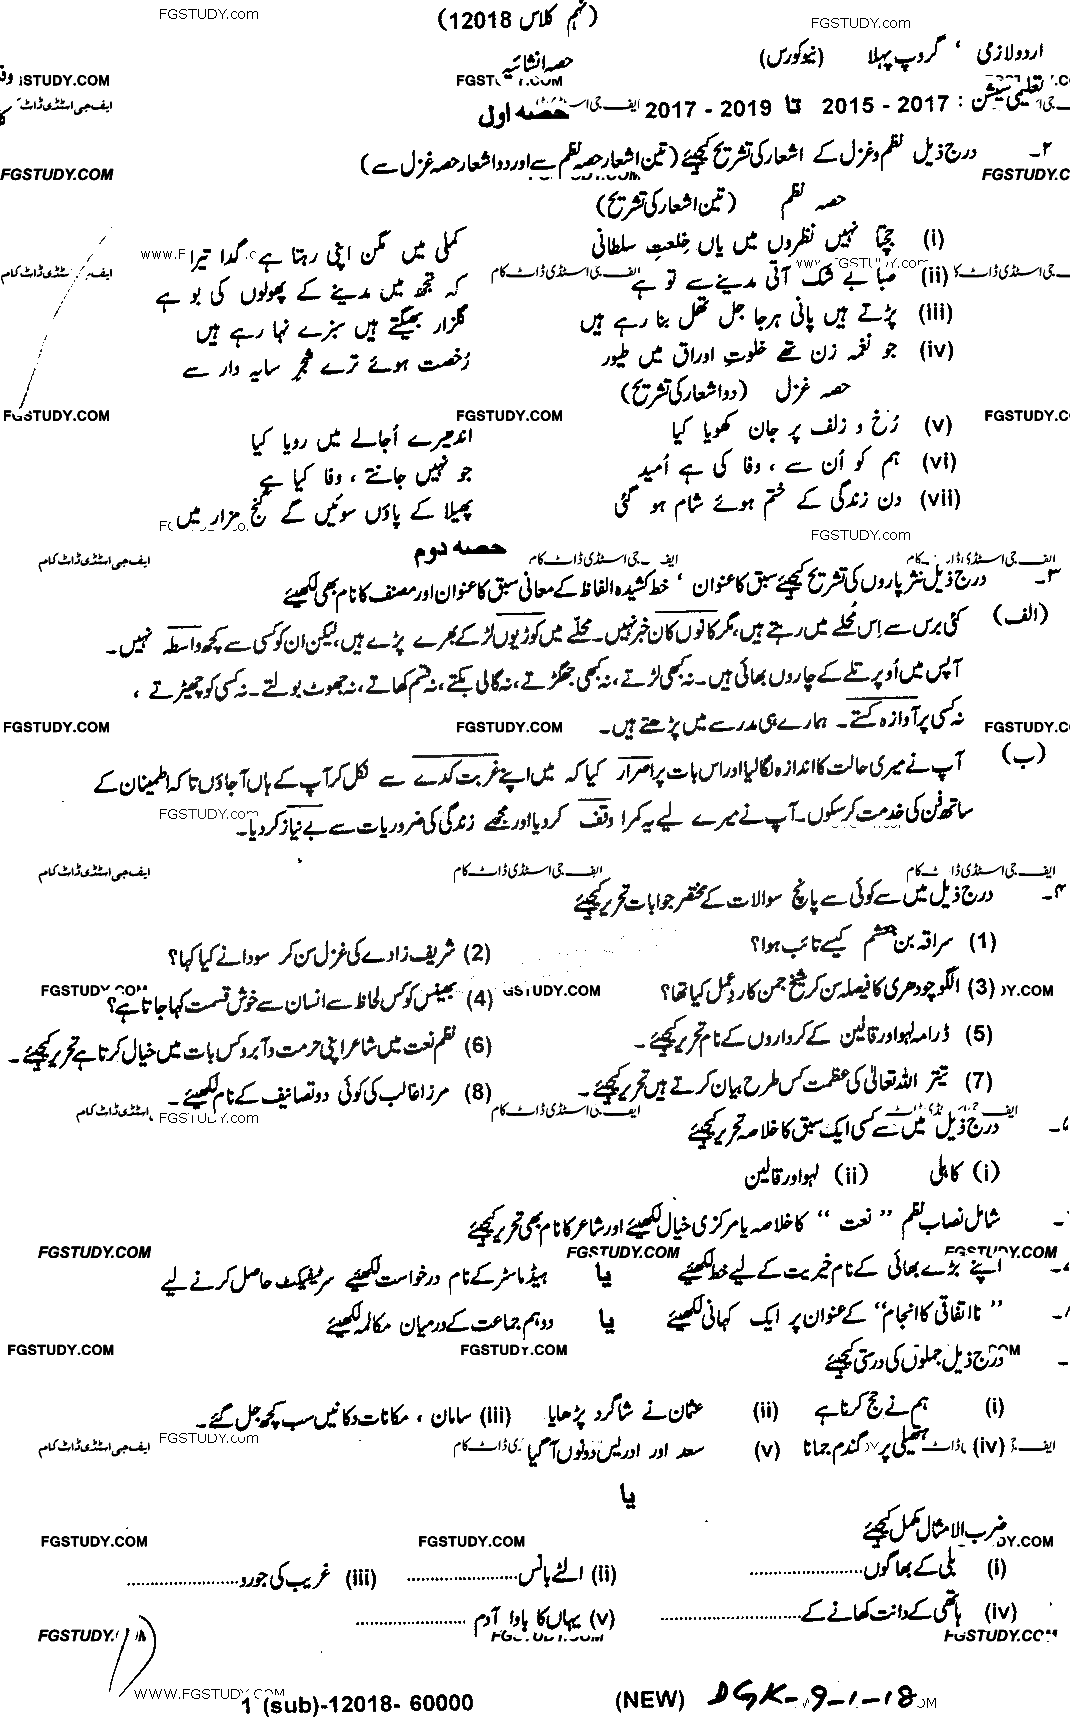 FGSTUDY.COM (نہم کلاس 12018) FGSTUDY.COM
اردو لازمی ، گروپ پہلا (نیو کورس)
حصہ انشائیہ
FGSTUDY.COM
تعلیمی سیشن : 2017 - 2015 تا 2019 - 2017 حصہ اول
۲۔ درج ذیل نظم و غزل کے اشعار کی تشریح کیجئے (تین اشعار حصہ نظم سے اور دو اشعار حصہ غزل سے)
FGSTUDY.COM
حصہ نظم (تین اشعار کی تشریح)
(i) جچا نہیں نظروں میں یاں خلعتِ سلطانی کملی میں مگن اپنی رہتا ہے گدا تیرا
(ii) صبا بے شک آتی مدینے سے تو ہے کہ تجھ میں مدینے کے پھولوں کی بو ہے
(iii) پڑتے ہیں پانی ہر جا جل تھل بنا رہے ہیں گلزار بھیگتے ہیں سبزے نہا رہے ہیں
(iv) جو نغمہ زن تھے خلوتِ اوراق میں طیور رُخصت ہوئے ترے شجرِ سایہ دار سے
حصہ غزل (دو اشعار کی تشریح)
FGSTUDY.COM FGSTUDY.COM
(v) رُخ و زلف پر جان کھویا کیا اندھیرے اُجالے میں رویا کیا
(vi) ہم کو اُن سے ، وفا کی ہے اُمید جو نہیں جانتے ، وفا کیا ہے
(vii) دن زندگی کے ختم ہوئے شام ہو گئی پھیلا کے پاؤں سوئیں گے کنجِ مزار میں
FGSTUDY.com
حصہ دوم
ایف جی اسٹڈی ڈاٹ کام
۳۔ درج ذیل نثر پاروں کی تشریح کیجئے سبق کا عنوان ، خط کشیدہ الفاظ کے معانی سبق کا عنوان اور مصنف کا نام بھی لکھیئے
(الف) کئی برس سے اِس محلے میں رہتے ہیں، مگر کانوں کان خبر نہیں۔ محلے میں کوڑیوں لڑکے بھرے پڑے ہیں، لیکن ان کو کسی سے کچھ واسطہ نہیں۔
آپس میں اُوپر تلے کے چاروں بھائی ہیں۔ نہ کبھی لڑتے، نہ کبھی جھگڑتے، نہ گالی بکتے، نہ قسم کھاتے، نہ جھوٹ بولتے۔ نہ کسی کو چھیڑتے ،
نہ کسی پر آوازہ کستے۔ ہمارے ہی مدرسے میں پڑھتے ہیں۔
FGSTUDY.COM FGSTUDY.COM
(ب) آپ نے میری حالت کا اندازہ لگا لیا اور اس بات پر اصرار کیا کہ میں اپنے غربت کدے سے نکل کر آپ کے ہاں آ جاؤں تاکہ اطمینان کے
ساتھ فن کی خدمت کر سکوں۔ آپ نے میرے لیے یہ کمرا وقف کر دیا اور مجھے زندگی کی ضروریات سے بے نیاز کر دیا۔
ایف جی اسٹڈی ڈاٹ کام
۴۔ درج ذیل میں سے کوئی سے پانچ سوالات کے مختصر جوابات تحریر کیجئے
(1) سراقہ بن جعشم کیسے تائب ہوا؟ (2) شریف زادے کی غزل سن کر سودا نے کیا کہا؟
(3) الگو چودھری کا فیصلہ سن کر شیخ جمن کا ردِ عمل کیا تھا؟ (4) بھینس کو کس لحاظ سے انسان سے خوش قسمت کہا جاتا ہے؟
(5) ڈرامہ لہو اور قالین کے کرداروں کے نام تحریر کیجئے۔ (6) نظم نعت میں شاعر اپنی حرمت و آبرو کس بات میں خیال کرتا ہے تحریر کیجئے۔
(7) تیتر اللہ تعالیٰ کی عظمت کس طرح بیان کرتے ہیں تحریر کیجئے۔ (8) مرزا غالب کی کوئی دو تصانیف کے نام لکھیئے۔
FGSTUDY.com
درج ذیل میں سے کسی ایک سبق کا خلاصہ تحریر کیجئے
(i) کاہلی (ii) لہو اور قالین
شاملِ نصاب نظم "نعت" کا خلاصہ یا مرکزی خیال لکھیئے اور شاعر کا نام بھی تحریر کیجئے
FGSTUDY.COM FGSTUDY.COM FGSTUDY.COM
اپنے بڑے بھائی کے نام خیریت کے لیے خط لکھیئے یا ہیڈ ماسٹر کے نام درخواست لکھیئے سرٹیفکیٹ حاصل کرنے لیے
"نااتفاقی کا انجام" کے عنوان پر ایک کہانی لکھیئے یا دو ہم جماعت کے درمیان مکالمہ لکھیئے
FGSTUDY.COM FGSTUDY.COM
درج ذیل جملوں کی درستی کیجئے
(i) ہم نے حج کرنا ہے (ii) عثمان نے شاگرد پڑھایا (iii) سامان ، مکانات دکانیں سب کچھ جل گئے۔
(iv) ہتھیلی پر گندم جمانا (v) سعد اور اور یس دونوں آ گیا
یا
ضرب الامثال مکمل کیجئے
FGSTUDY.COM FGSTUDY.COM
(i) بلی کے بھاگوں.................... (ii) الٹے بانس.................... (iii) غریب کی جورو....................
(iv) ہاتھی کے دانت کھانے کے.................... (v) یہاں کا باوا آدم ....................
WWW.FGSTUDY.COM
1 (sub)-12018- 60000 (NEW) DGK-9-1-18